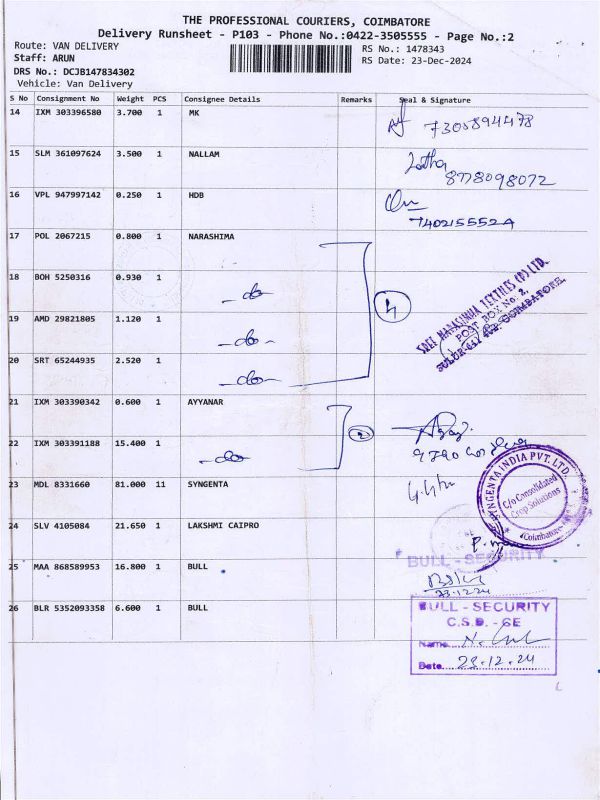 THE PROFESSIONAL COURIERS, COIMBATORE
Delivery Runsheet - P103 - Phone No.:0422-3505555 - Page No.:2
Route: VAN DELIVERY
RS No.: 1478343
Staff: ARUN
RS Date: 23-Dec-2024
DRS No.: DCJB147834302
Vehicle: Van Delivery
S No Consignment No Weight PCS Consignee Details Remarks Seal & Signature
14 IXM 303396580 3.700 1 MK
7305894478
15 SLM 361097624 3.500 1 NALLAM
Latha
8778098072
16 VPL 947997142 0.250 1 HDB
740215552A
17 POL 2067215 0.800 1 NARASHIMA
18 BOH 5250316 0.930 1 -do-
4
SREE NARASIMHA TEXTILES (P) LTD.
POST BOX No. 2,
19 AMD 29821805 1.120 1 -do-
20 SRT 65244935 2.520 1 -do-
21 IXM 303390342 0.600 1 AYYANAR
2
22 IXM 303391188 15.400 1 -do-
23 MDL 8331660 81.000 11 SYNGENTA
SYNGENTA INDIA PVT. LTD.
C/o Consolidated
Crop Solutions
Coimbatore
24 SLV 4105084 21.650 1 LAKSHMI CAIPRO
BULL - SECURITY
25 MAA 868589953 16.800 1 BULL
23.12.24
26 BLR 5352093358 6.600 1 BULL
BULL - SECURITY
C.S.D. - GE
Name
Date 23.12.24